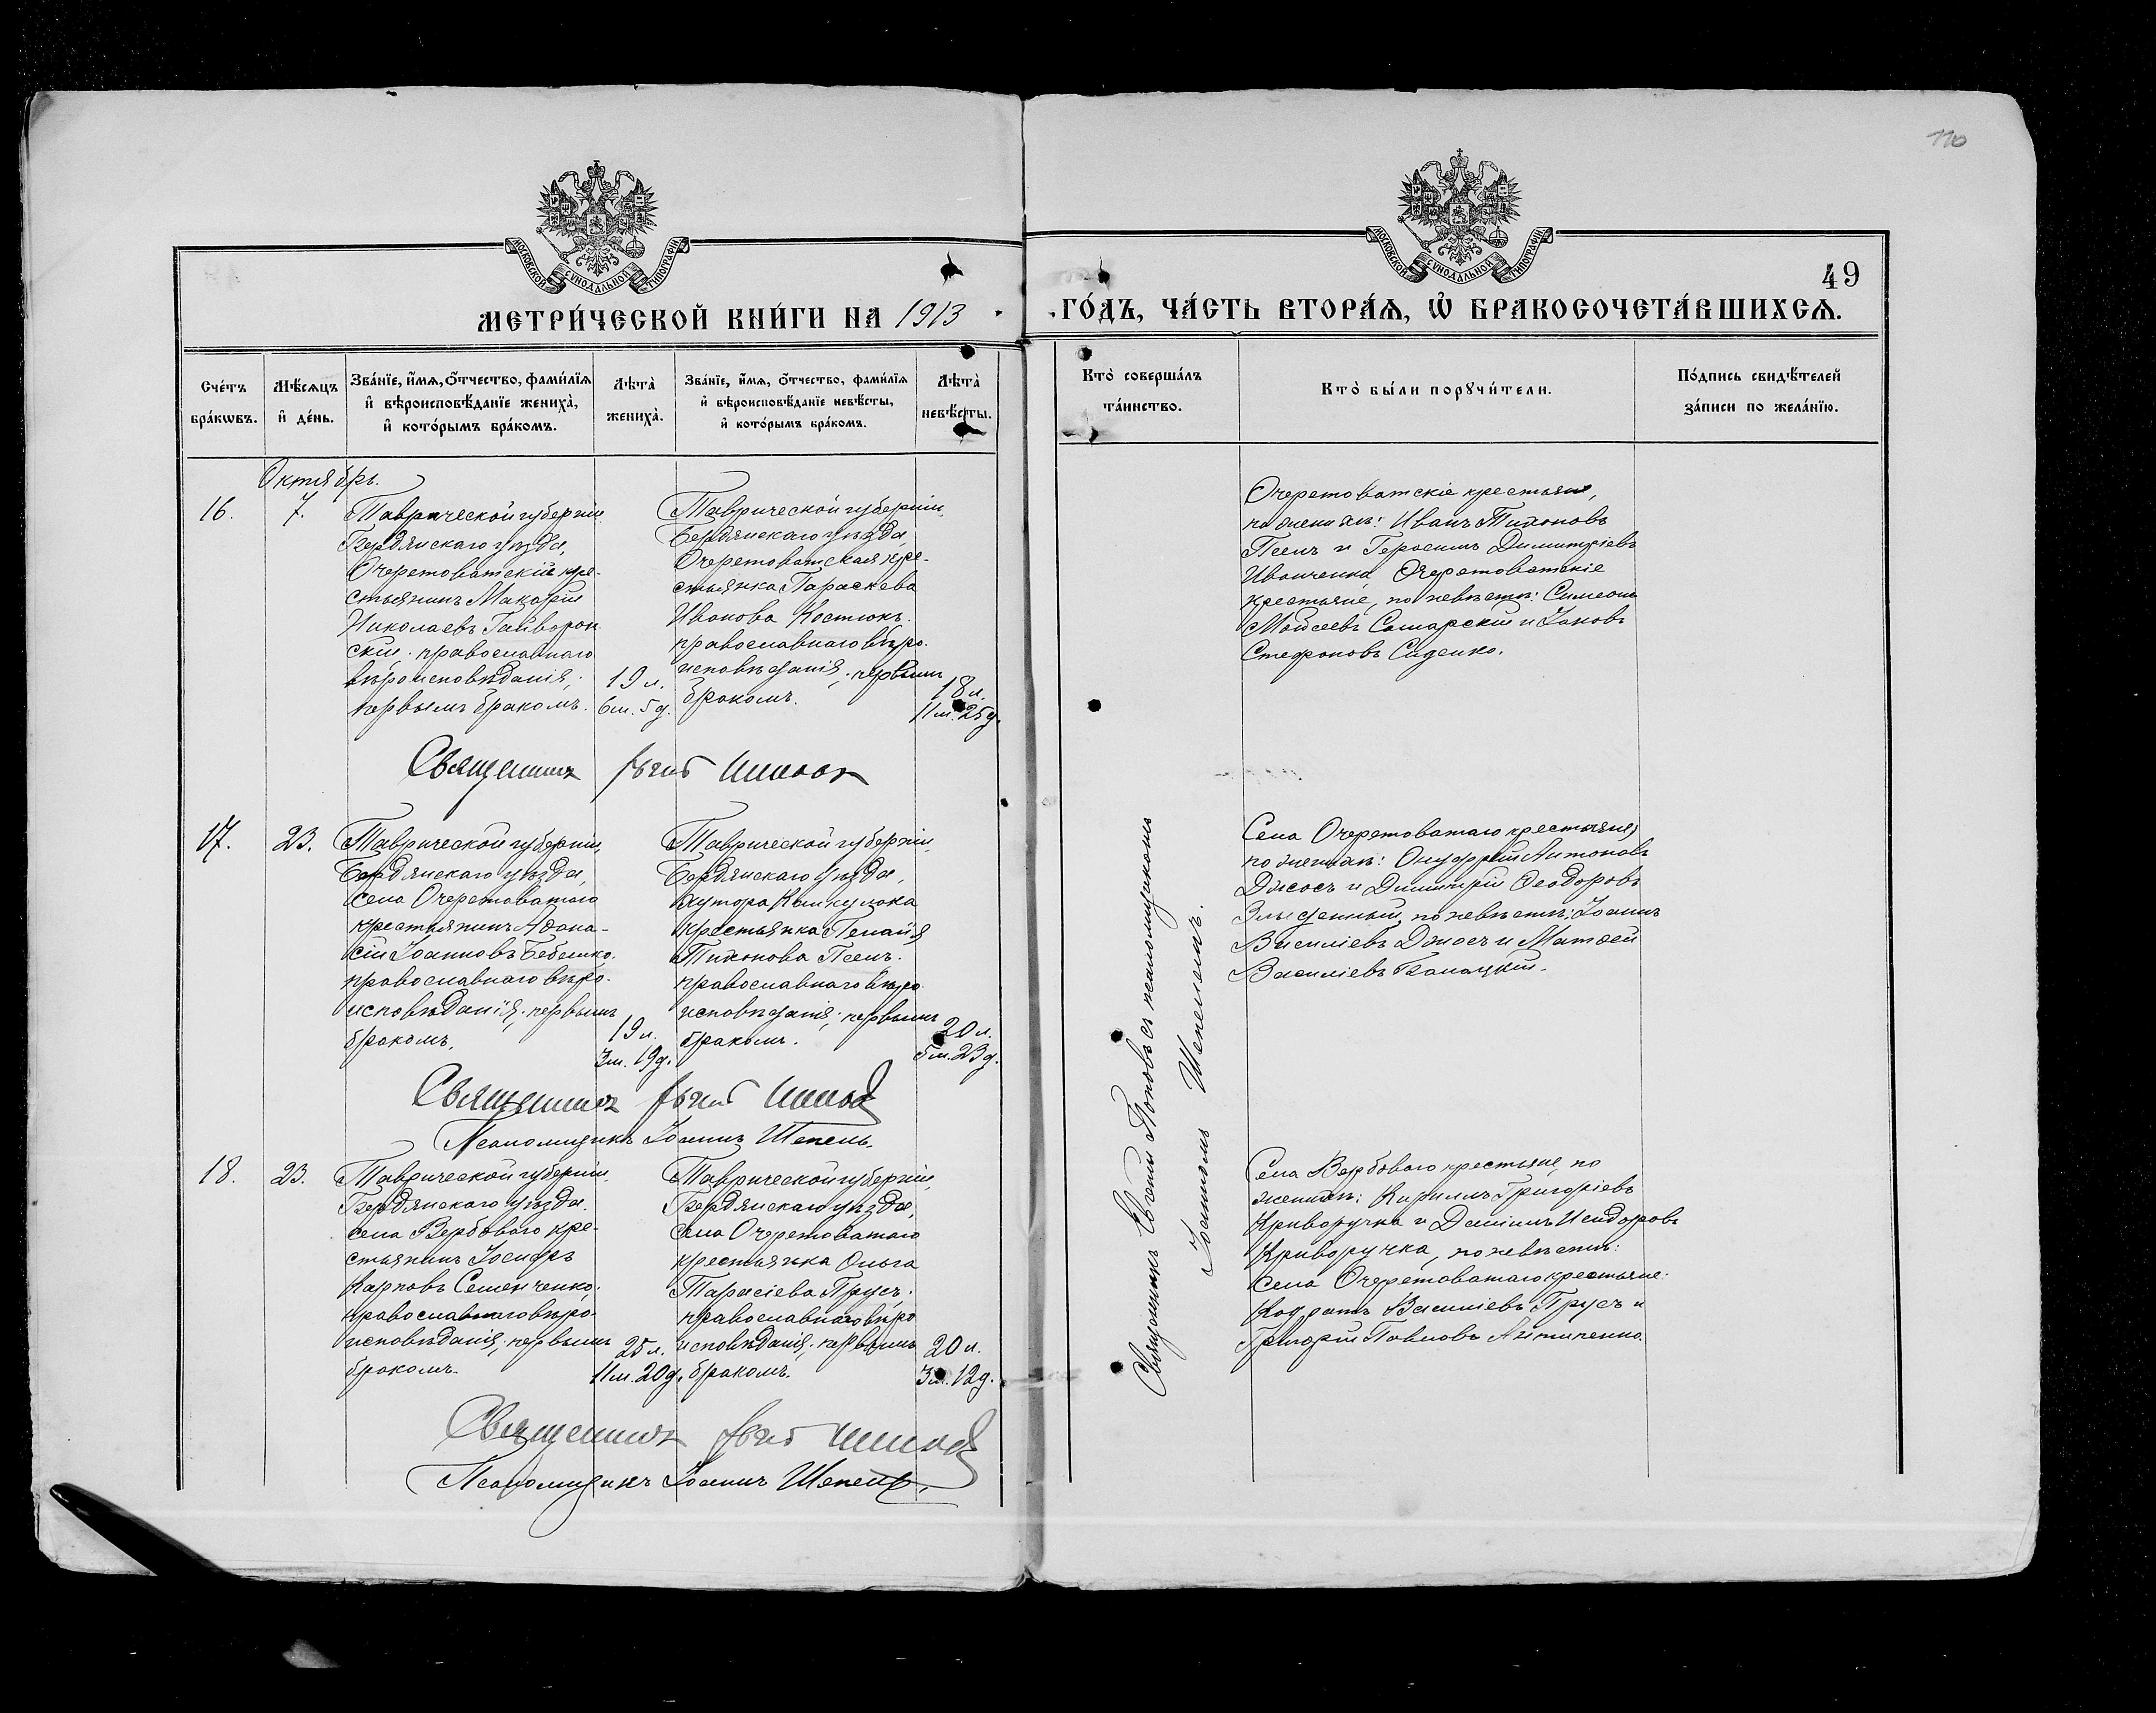 110
МОСКОВСКОЙ СѴНОДАЛЬНОЙ ТИПОГРАФІИ
МОСКОВСКОЙ СѴНОДАЛЬНОЙ ТИПОГРАФІИ
49
МЕТРИ́ЧЕСКОЙ КНИ́ГИ НА 1913
ГО́ДЪ, ЧА́СТЬ ВТОРА́Ѧ, Ѡ҆ БРАКОСОЧЕТА́ВШИХСѦ.
Сче́тъ
бра́кѡвъ.
Мѣ́сяцъ
и҆ де́нь.
Зва́нїе, и҆́мѧ, о҆́тчество, фами́лїѧ
и҆ вѣроисповѣ́данїе жениха̀,
и҆ кото́рымъ бра́комъ.
Лѣта̀
жениха̀.
Зва́нїе, и҆́мѧ, о҆́тчество, фами́лїѧ
и҆ вѣроисповѣ́данїе невѣ́сты,
и҆ кото́рымъ бра́комъ.
Лѣта̀
невѣ́сты.
Кто̀ соверша́лъ
та́инство.
Кто̀ бы́ли порꙋчи́тели.
По́дпись свидѣ́телей
за́писи по жела́нїю.
Октябрь.
16.
7.
Таврической губерніи
Бердянскаго уѣзда,
Очеретоватскій кре-
стьянинъ Макарій
Николаевъ Гайворон
скій; православнаго
вѣроисповѣданія;
первымъ бракомъ.
19 л.
6 м. 5 д.
Таврической губерніи,
Бердянскаго уѣзда,
Очеретоватская кре-
стьянка Параскева
Иванова Костюкъ;
православнаго вѣро-
исповѣданія; первымъ
бракомъ.
18 л.
11 м. 25 д.
Очеретоватскіе крестьяне,
по женихѣ: Иванъ Тихоновъ
Псенъ и Герасимъ Димитріевъ
Иванченко, Очеретоватскіе
крестьяне, по невѣстѣ: Симеонъ
Моисеевъ Самарскій и Іаковъ
Стефановъ Сиденко.
Священникъ
17.
23.
Таврической губерніи,
Бердянскаго уѣзда,
села Очеретоватаго
крестьянинъ Аѳана-
сій Іоанновъ Бебешко;
православнаго вѣро-
исповѣданія; первымъ
бракомъ.
19 л.
3 м. 19 д.
Таврической губерніи,
Бердянскаго уѣзда,
хутора
крестьянка Пелагія
Тихонова Псенъ;
православнаго вѣро-
исповѣданія; первымъ
бракомъ.
20 л.
5 м. 23 д.
Села Очеретоватаго крестьяне,
по женихѣ: Онуфрій Антоновъ
Джосъ и Димитрій Ѳеодоровъ
Злыденный, по невѣстѣ: Іоаннъ
Василіевъ Джосъ и Матѳей
Василіевъ
Священникъ
Псаломщикъ Іоаннъ Шепель.
18.
23.
Таврической губерніи,
Бердянскаго уѣзда,
села Вербоваго кре-
стьянинъ Іосифъ
Карповъ Семенченко;
православнаго вѣро-
исповѣданія; первымъ
бракомъ.
25 л.
11 м. 20 д.
Таврической губерніи,
Бердянскаго уѣзда,
села Очеретоватаго
крестьянка Ольга
Тарасіева Прусъ;
православнаго вѣро
исповѣданія; первымъ
бракомъ.
20 л.
3 м. 12 д.
Села Вербоваго крестьяне, по
женихѣ: Кириллъ Григоріевъ
Криворучка и Даніилъ Исидоровъ
Криворучка, по невѣстѣ:
села Очеретоватаго крестьяне:
Кодратъ Василіевъ Прусъ и
Григорій Павловъ Антипенко.
Священникъ
Псаломщикъ Іоаннъ Шепель.
Священникъ Евгеній Поповъ съ псаломщикомъ
Іоанномъ Шепелемъ.